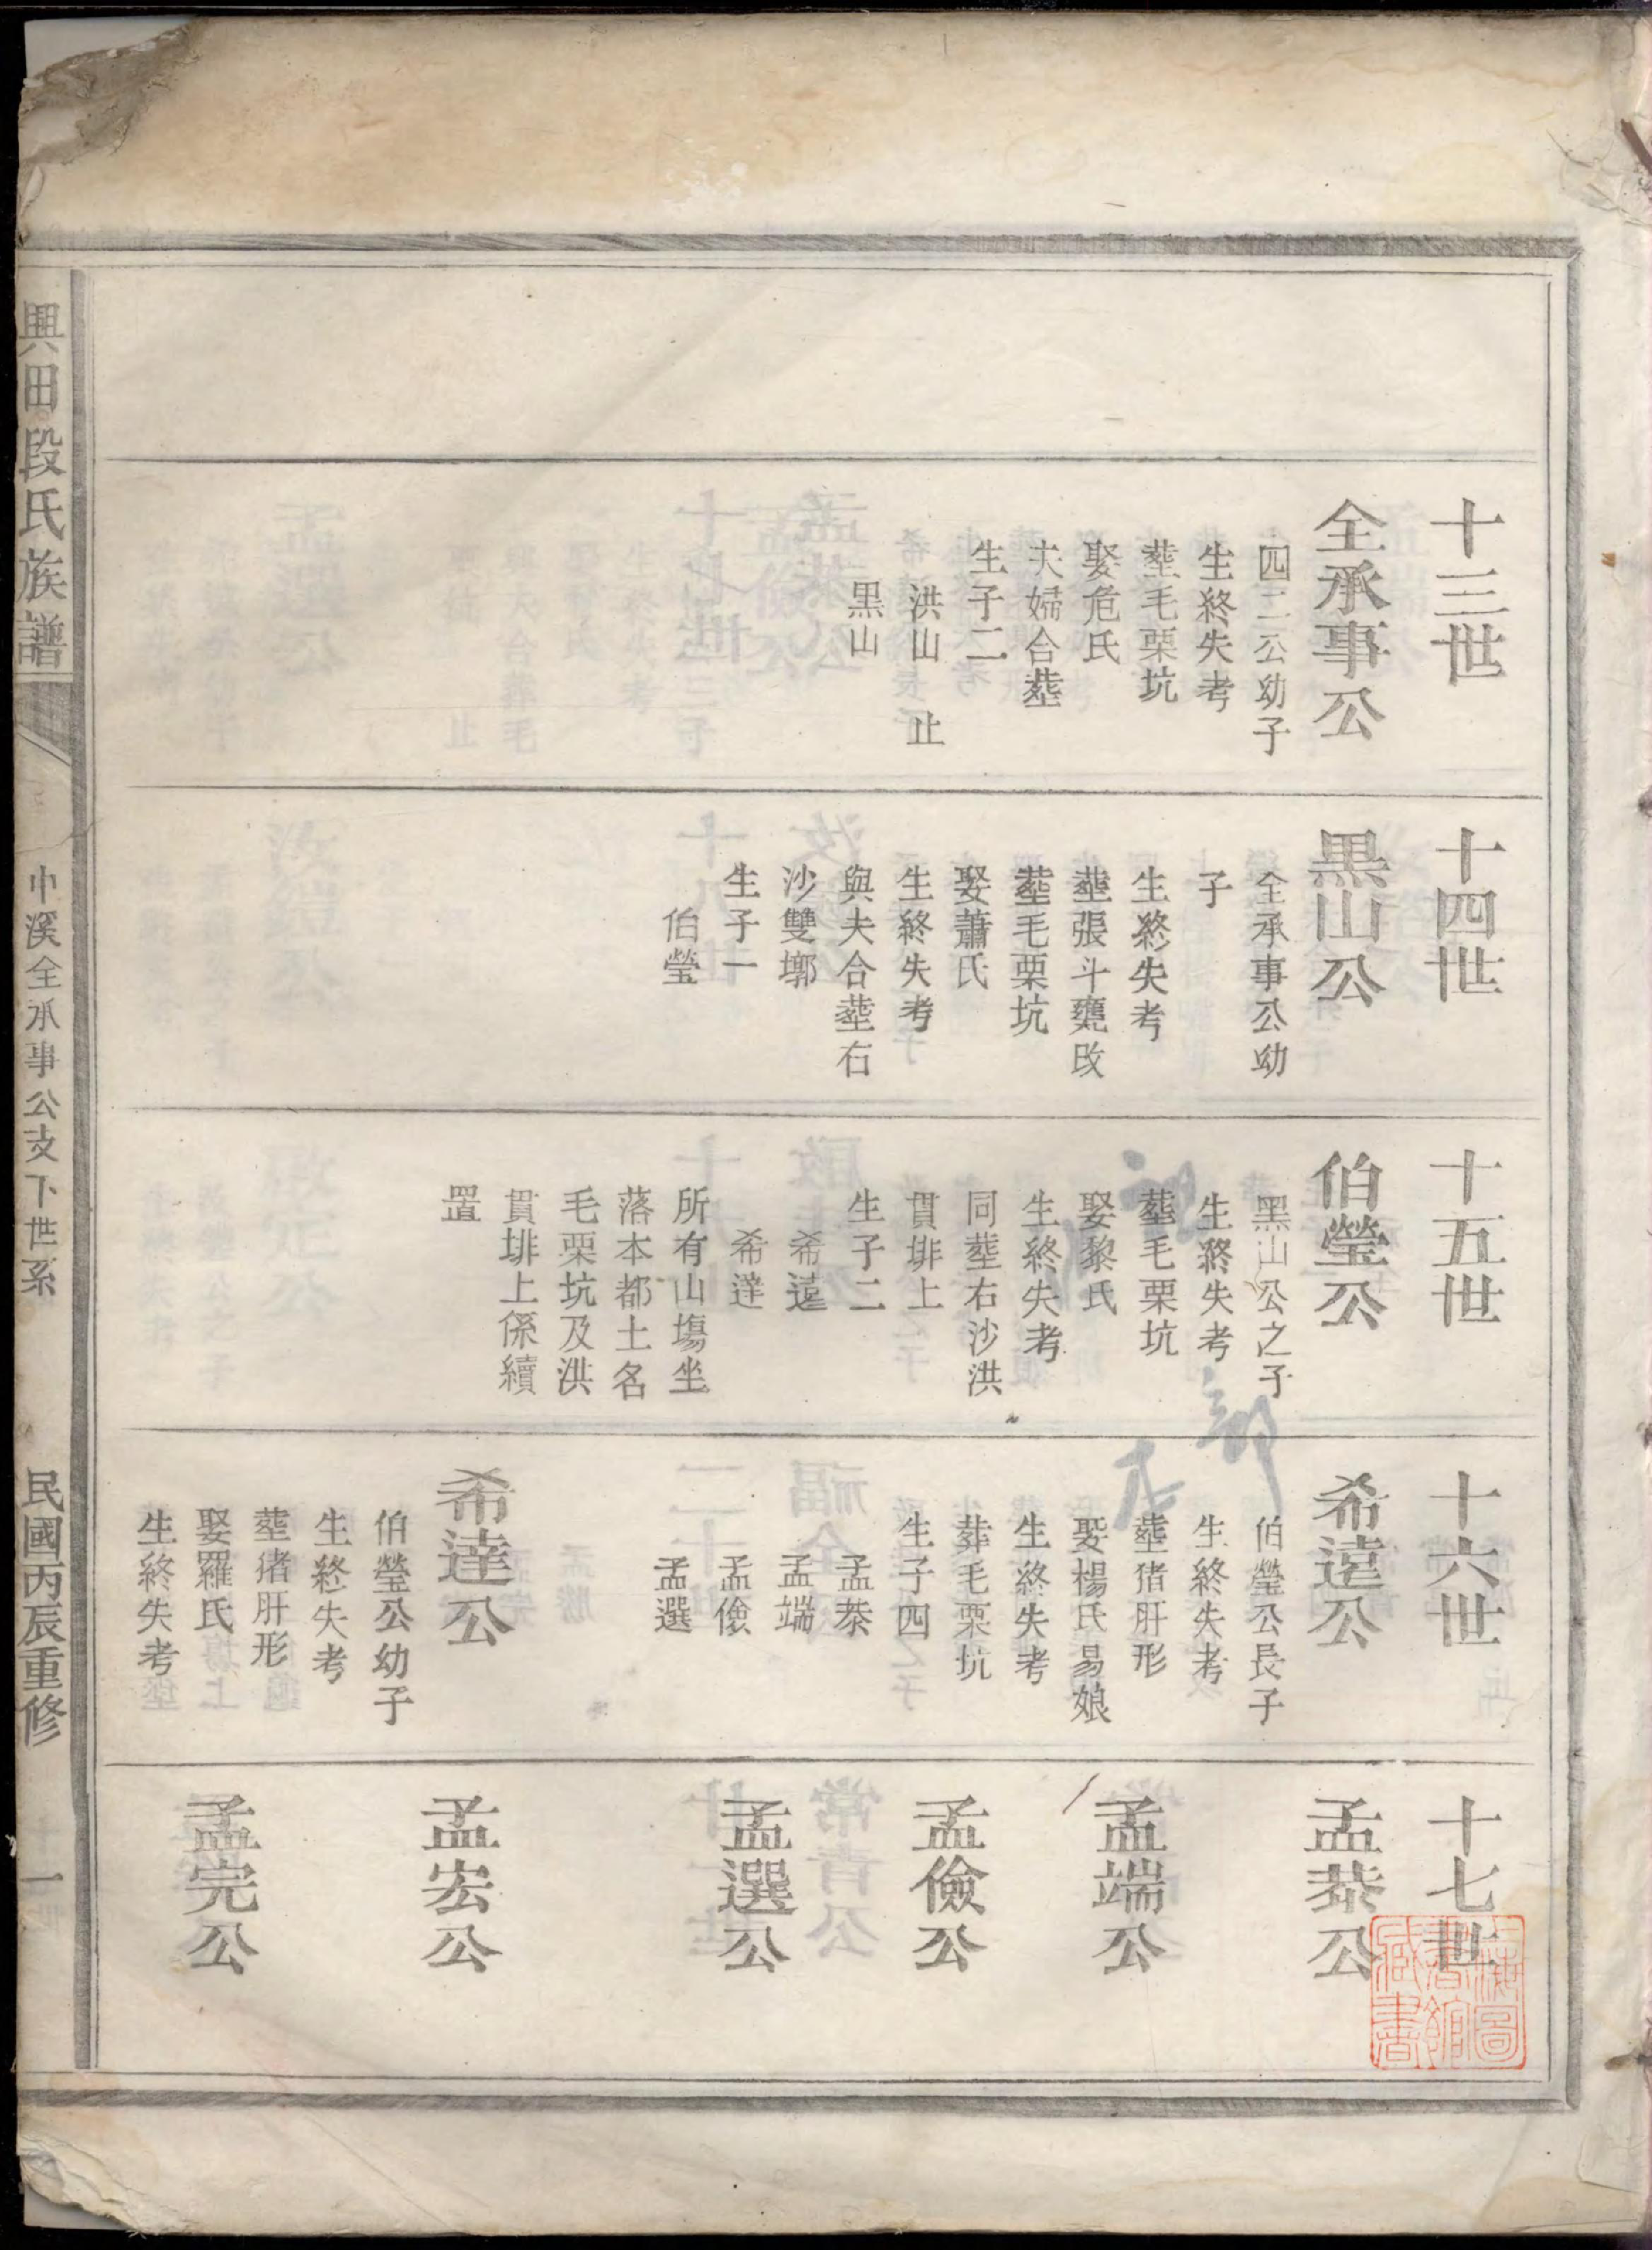 十三世
全承事公
四二公幼子
生終失考
塟毛栗坑
娶危氏
夫婦合塟
生子二
洪山 止
黒山
十四世
黒山公
全承事公幼
子
生終失考
塟張斗甕改
塟毛栗坑
娶蕭氏
生終失考
與夫合塟右
沙雙墎
生子一
伯瑩
十五世
伯瑩公
黑山公之子
生終失考
塟毛栗坑
娶黎氏
生終失考
同塟右沙洪
貫排上
生子二
希逺
希達
所有山塲坐
落本都土名
毛栗坑及洪
貫排上係續
置
十六世
希逺公
伯瑩公長子
生終失考
塟猪肝形
娶楊氏易娘
生終失考
葬毛栗坑
生子四
孟恭
孟端
孟儉
孟選
希達公
伯瑩公幼子
生終失考
塟猪肝形
娶羅氏
生終失考
十七世
孟恭公
孟端公
孟儉公
孟選公
孟宏公
孟完公
興田段氏族譜
中溪全承事公支下世系
民國丙辰重修
一